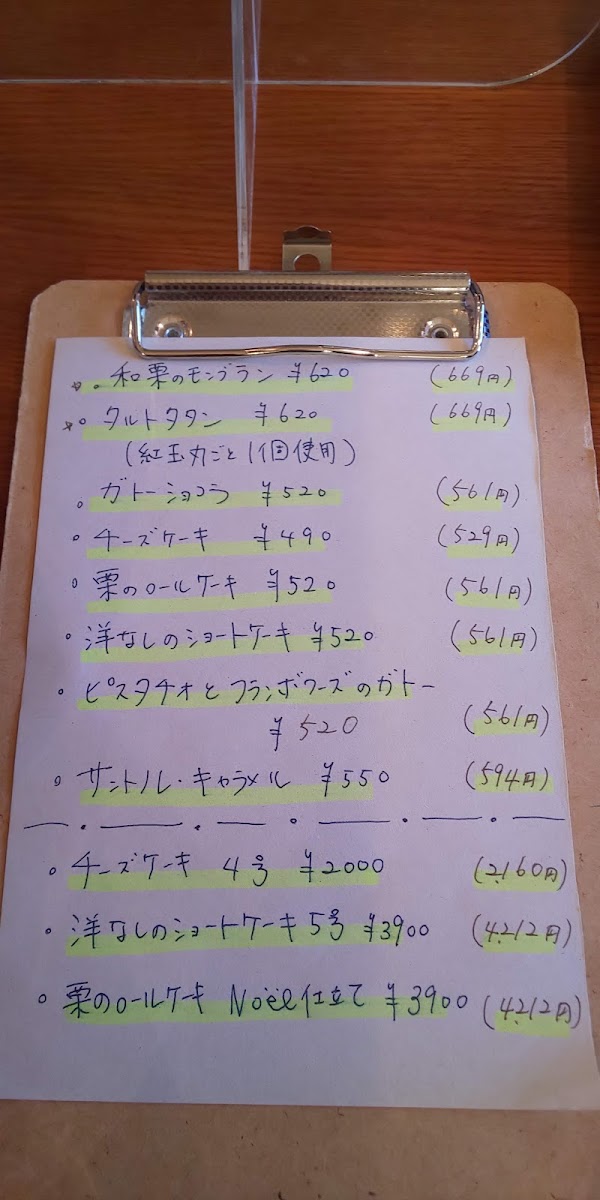 * ・和栗のモンブラン ¥620 (669円)
* ・タルトタタン ¥620 (669円)
(紅玉丸ごと1個使用)
・ガトーショコラ ¥520 (561円)
・チーズケーキ ¥490 (529円)
・栗のロールケーキ ¥520 (561円)
・洋なしのショートケーキ ¥520 (561円)
・ピスタチオとフランボワーズのガトー
¥520 (561円)
・サントノル・キャラメル ¥550 (594円)
・チーズケーキ 4号 ¥2000 (2,160円)
・洋なしのショートケーキ 5号 ¥3900 (4,212円)
・栗のロールケーキ Noël仕立て ¥3900 (4,212円)